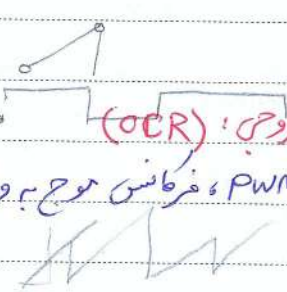 (OCR) :
PWM ، فرکانس موج به